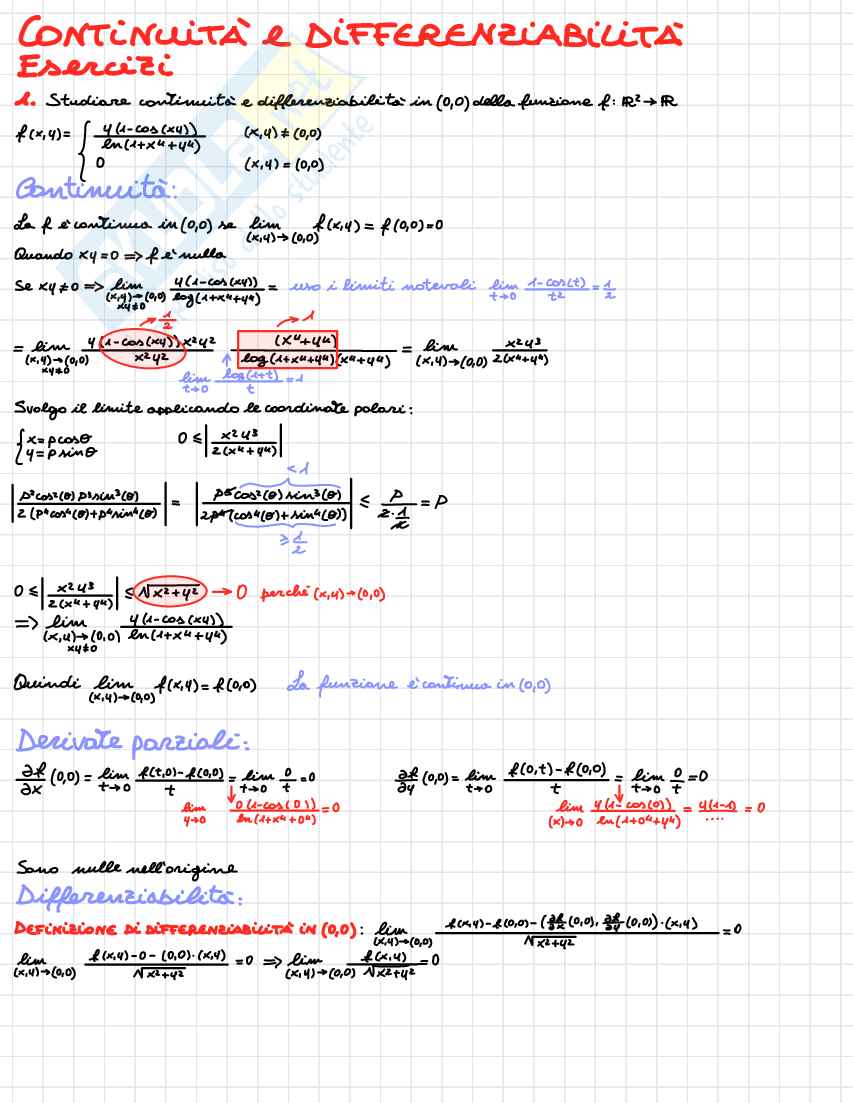 CONTINUITÀ e DIFFERENZIABILITÀ
Esercizi
1. Studiare continuità e differenziabilità in (0,0) della funzione f: ℝ² → ℝ
f(x,y) = { y(1-cos(xy)) / ln(1+x⁴+y⁴) (x,y) ≠ (0,0)
0 (x,y) = (0,0)
Continuità:
La f è continua in (0,0) se lim (x,y)→(0,0) f(x,y) = f(0,0) = 0
Quando xy=0 => f è nulla
Se xy≠0 => lim (x,y)→(0,0) xy≠0 y(1-cos(xy)) / log(1+x⁴+y⁴) = uso i limiti notevoli lim t→0 1-cos(t) / t² = 1/2
→ 1/2 → 1
= lim (x,y)→(0,0) xy≠0 y(1-cos(xy))x²y² / x²y² (x⁴+y⁴) / log(1+x⁴+y⁴)(x⁴+y⁴) = lim (x,y)→(0,0) x²y³ / 2(x⁴+y⁴)
lim t→0 log(1+t) / t = 1
Svolgo il limite applicando le coordinate polari:
{ x = ρcosθ 0 ≤ | x²y³ / 2(x⁴+y⁴) |
y = ρsinθ
<1
| ρ²cos²(θ) ρ³sin³(θ) / 2(ρ⁴cos⁴(θ)+ρ⁴sin⁴(θ)) | = | ρ⁵cos²(θ)sin³(θ) / 2ρ⁴(cos⁴(θ)+sin⁴(θ)) | ≤ ρ / 2·1/2 = ρ
≥ 1/2
0 ≤ | x²y³ / 2(x⁴+y⁴) | ≤ √x²+y² → 0 perché (x,y)→(0,0)
=> lim (x,y)→(0,0) xy≠0 y(1-cos(xy)) / ln(1+x⁴+y⁴)
Quindi lim (x,y)→(0,0) f(x,y) = f(0,0) La funzione è continua in (0,0)
Derivate parziali:
∂f/∂x (0,0) = lim t→0 f(t,0)-f(0,0) / t = lim t→0 0/t = 0 ∂f/∂y (0,0) = lim t→0 f(0,t)-f(0,0) / t = lim t→0 0/t = 0
lim y→0 0(1-cos(0)) / ln(1+x⁴+0⁴) = 0 lim (x)→0 y(1-cos(0)) / ln(1+0⁴+y⁴) = y(1-1) / .... = 0
Sono nulle nell'origine
Differenziabilità:
DEFINIZIONE DI DIFFERENZIABILITÀ IN (0,0): lim (x,y)→(0,0) f(x,y)-f(0,0)-(∂f/∂x (0,0), ∂f/∂y (0,0))·(x,y) / √x²+y² = 0
lim (x,y)→(0,0) f(x,y)-0-(0,0)·(x,y) / √x²+y² = 0 => lim (x,y)→(0,0) f(x,y) / √x²+y² = 0